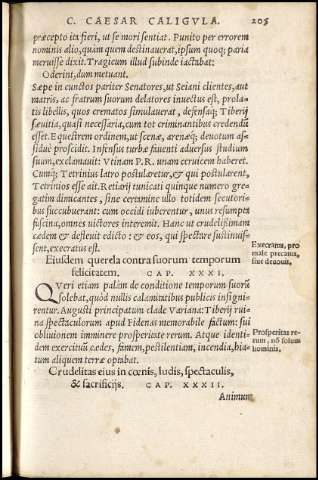 C. CAESAR CALIGVLA. 205
præcepto ita fieri, ut se mori sentiat. Punito per errorem
nominis alio, quàm quem destinauerat, ipsum quoq; paria
meruisse dixit. Tragicum illud subinde iactabat:
Oderint, dum metuant.
Sæpe in cunctos pariter Senatores, ut Seiani clientes, aut
matris, ac fratrum suorum delatores inuectus est, prola-
tis libellis, quos crematos simulauerat, defensaq; Tiberij
sæuitia, quasi necessaria, cum tot criminantibus credendũ
esset. Equestrem ordinem, ut scenæ, arenæq; deuotum as-
siduè proscidit. Infensus turbæ fauenti aduersus studium
suum, exclamauit: Vtinam P.R. unam ceruicem haberet.
Cumq; Tetrinius latro postularetur, & qui postularent,
Tetrinios esse ait. Retiarij tunicati quinque numero gre-
gatim dimicantes, sine certamine ullo totidem secutori-
bus succubuerant: cum occidi iuberentur, unus resumpta
fuscina, omnes uictores interemit. Hanc ut crudelißimam
cædem & defleuit edicto: & eos, qui spectare sustinuis-
sent, execratus est.
Execratus, pro
malè precatus,
siue deuouit.
Eiusdem querela contra suorum temporum
felicitatem. CAP. XXXI.
Queri etiam palàm de conditione temporum suorũ
solebat, quòd nullis calamitatibus publicis insigni-
rentur. Augusti principatum clade Variana: Tiberij rui-
na spectaculorum apud Fidenas memorabile factum: sui
obliuionem imminere prosperitate rerum. Atque identi-
dem exercituũ cædes, famem, pestilentiam, incendia, hia-
tum aliquem terræ optabat.
Prosperitas re-
rum, nõ solum
hominis.
Crudelitas eius in cœnis, ludis, spectaculis,
& sacrificijs. CAP. XXXII.
Animum